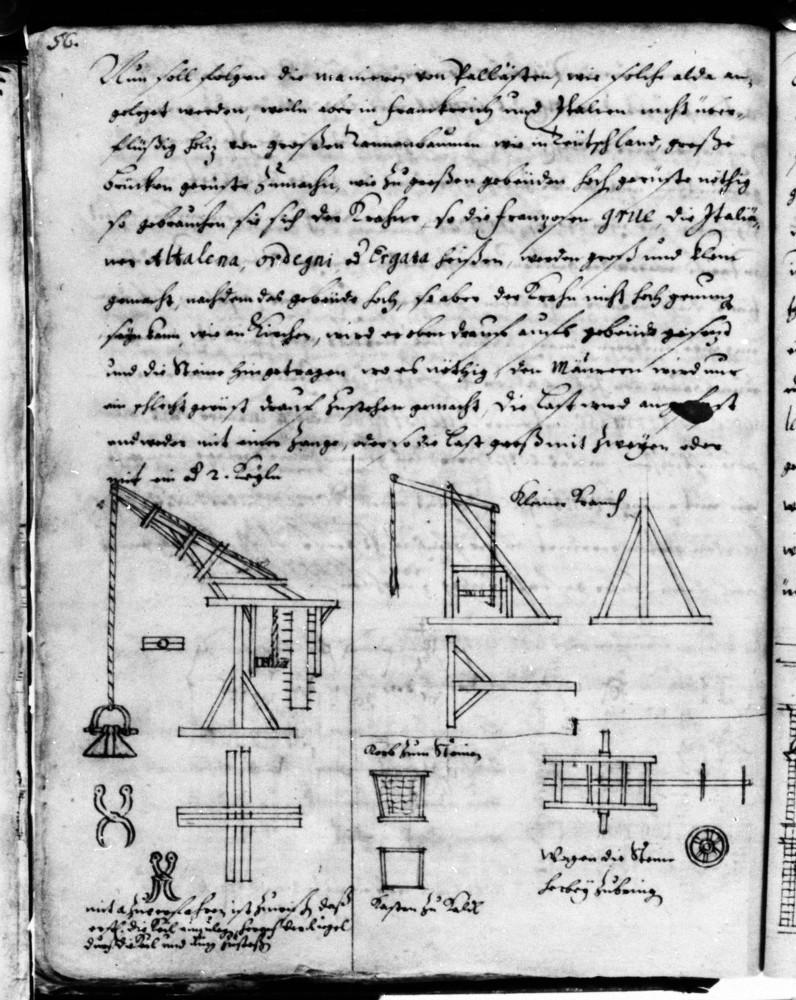 56.
Nun soll folgen die manieren von Pallästen, wie solche alda an-
geleget werden, weiln aber in Franckreich und Italien nicht über-
flüßig holtz von großen Tannenbaumen wie in Teütschland, große
brücken gerüste Zumachen, wie zu großen gebeüden hoch gerüste nöthig
so gebrauchen sie sich der Krahne, so die Franzosen grue, die Italiä-
ner Altalena, ordegni, Ergata heißen, werden groß und klein
gemacht, nachdem das gebeüde hoch, so aber der Krahn nicht hoch genung
seyn kann, wie an Kirchen, wird er oben drauf aufs gebeüde gesetzt
und die Steine hingetragen wo es nöthig, den Mäurern wird nur
ein schlecht gerüst drauf zustehen gemacht, die last wird
entweder mit einer Zange, oder so die last groß mit zweyen oder
mit ein 2. Kegeln
Kleiner Kranch
Korb zum Steinen
Kasten zu Kalck
Wagen die Steine
herbey zubring